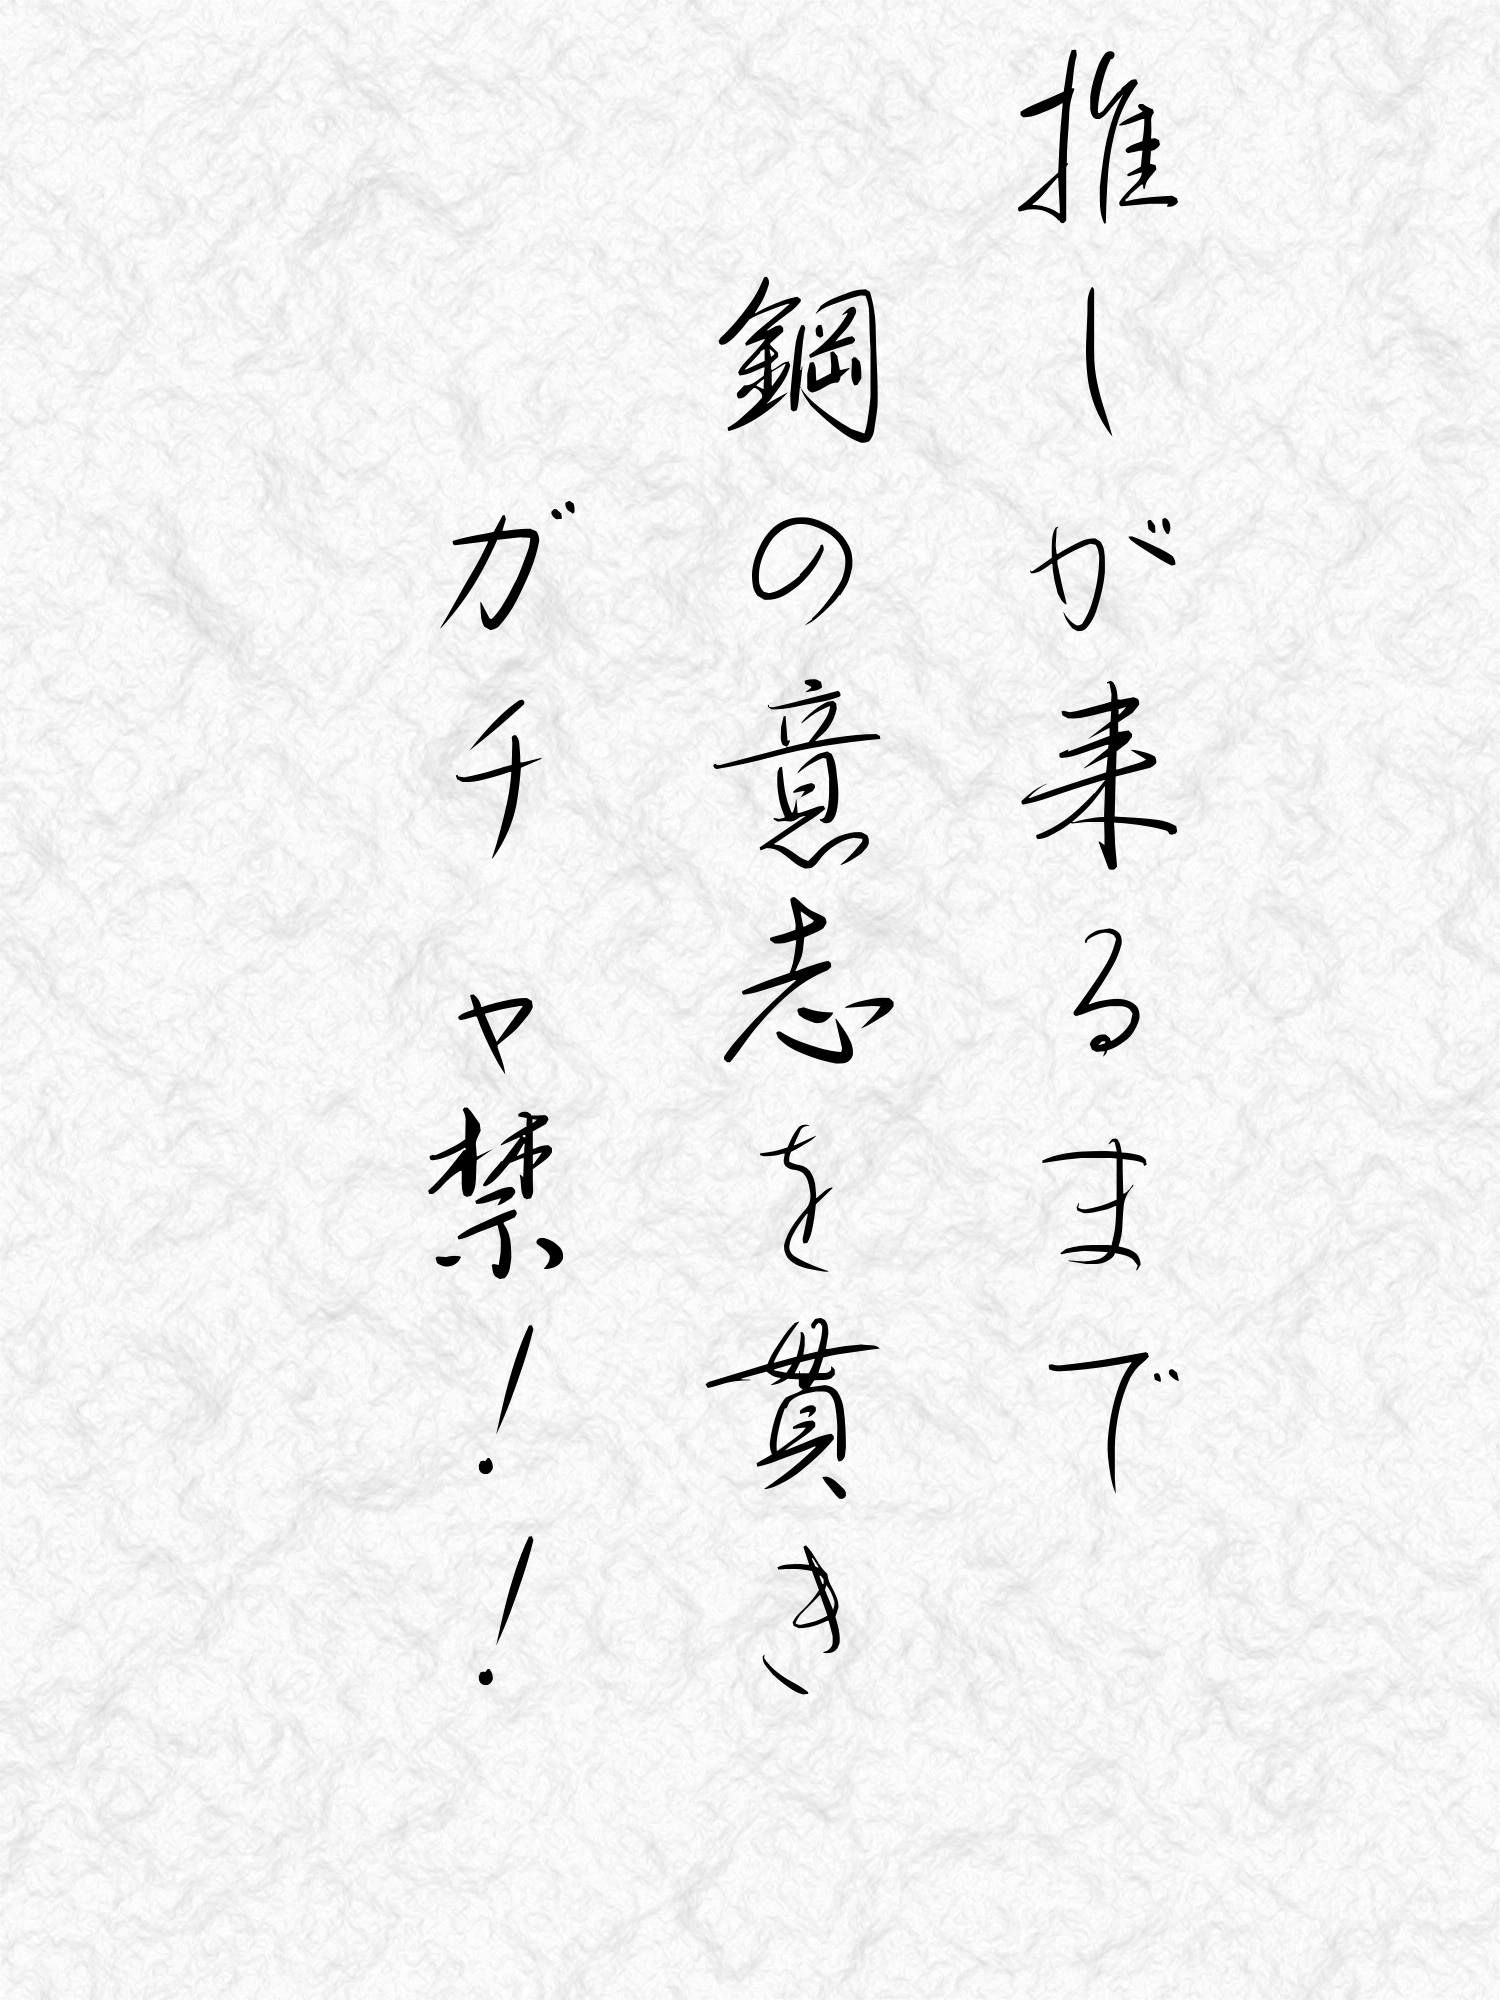 推しが来るまで
鋼の意志を貫き
ガチャ禁！！